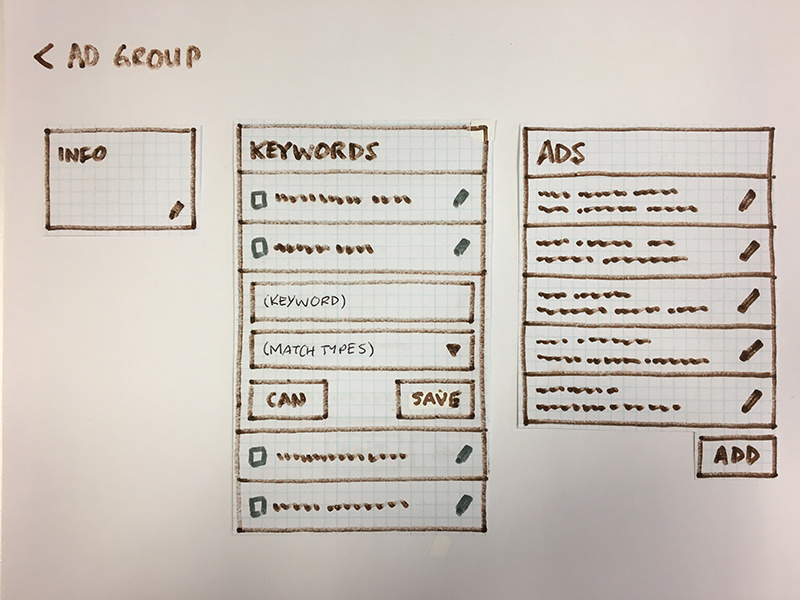 < AD GROUP
INFO
KEYWORDS
(KEYWORD)
(MATCH TYPES)
CAN
SAVE
ADS
ADD